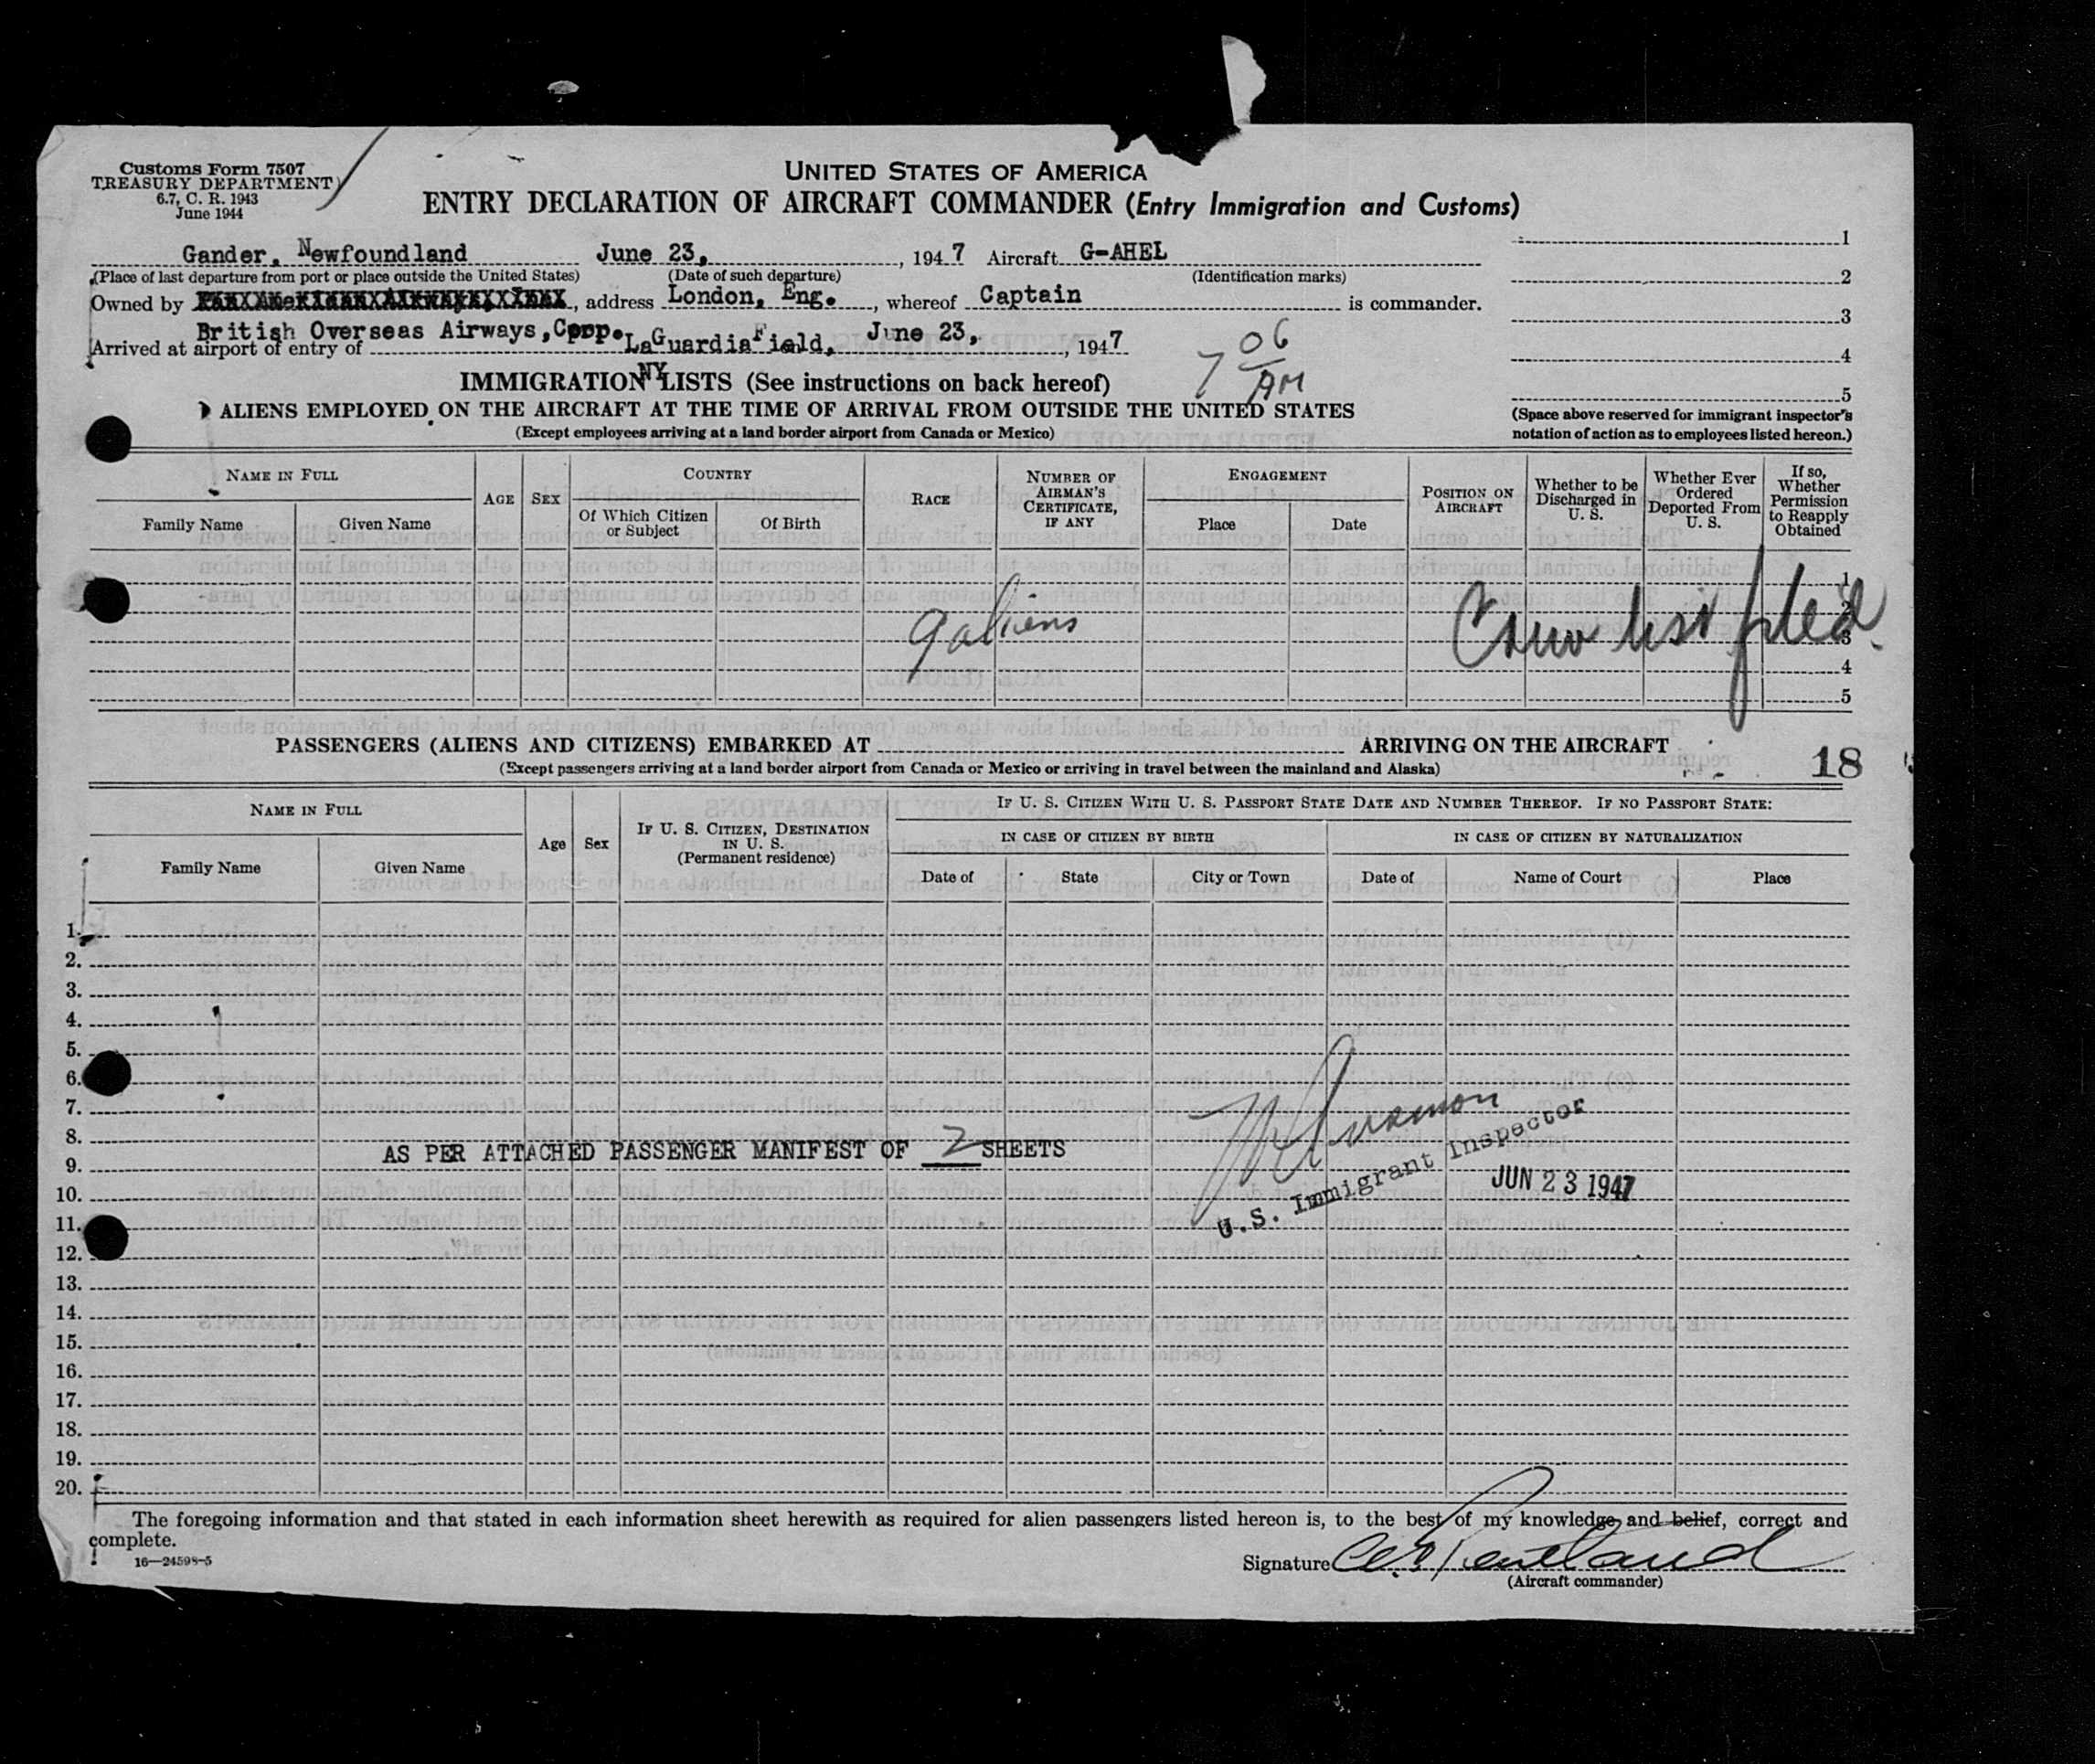 Customs Form 7507
TREASURY DEPARTMENT
6.7, C. R. 1943
June 1944
UNITED STATES OF AMERICA
ENTRY DECLARATION OF AIRCRAFT COMMANDER (Entry Immigration and Customs)
Gander, Newfoundland June 23, , 1947 Aircraft G-AHEL
(Place of last departure from port or place outside the United States) (Date of such departure) (Identification marks)
Owned by , address London, Eng. , whereof Captain is commander.
British Overseas Airways, Corp.
Arrived at airport of entry of LaGuardia Field, June 23, , 1947
NY
7 06 AM
1
2
3
4
5
(Space above reserved for immigrant inspector's
notation of action as to employees listed hereon.)
IMMIGRATION LISTS (See instructions on back hereof)
ALIENS EMPLOYED ON THE AIRCRAFT AT THE TIME OF ARRIVAL FROM OUTSIDE THE UNITED STATES
(Except employees arriving at a land border airport from Canada or Mexico)
NAME IN FULL
Family Name
Given Name
AGE
SEX
COUNTRY
Of Which Citizen
or Subject
Of Birth
RACE
NUMBER OF
AIRMAN'S
CERTIFICATE,
IF ANY
ENGAGEMENT
Place
Date
POSITION ON
AIRCRAFT
Whether to be
Discharged in
U. S.
Whether Ever
Ordered
Deported From
U. S.
If so,
Whether
Permission
to Reapply
Obtained
1
2
3
4
5
9 aliens
Crew list filed
PASSENGERS (ALIENS AND CITIZENS) EMBARKED AT ARRIVING ON THE AIRCRAFT
(Except passengers arriving at a land border airport from Canada or Mexico or arriving in travel between the mainland and Alaska)
18
NAME IN FULL
Family Name
Given Name
Age
Sex
IF U. S. CITIZEN, DESTINATION
IN U. S.
(Permanent residence)
IF U. S. CITIZEN WITH U. S. PASSPORT STATE DATE AND NUMBER THEREOF. IF NO PASSPORT STATE:
IN CASE OF CITIZEN BY BIRTH
IN CASE OF CITIZEN BY NATURALIZATION
Date of
State
City or Town
Date of
Name of Court
Place
1.
2.
3.
4.
5.
6.
7.
8.
AS PER ATTACHED PASSENGER MANIFEST OF 2 SHEETS
9.
10.
11.
12.
13.
14.
15.
16.
17.
18.
19.
20.
U.S. Immigrant Inspector
JUN 23 1947
The foregoing information and that stated in each information sheet herewith as required for alien passengers listed hereon is, to the best of my knowledge and belief, correct and
complete.
16—24598-5
Signature
(Aircraft commander)